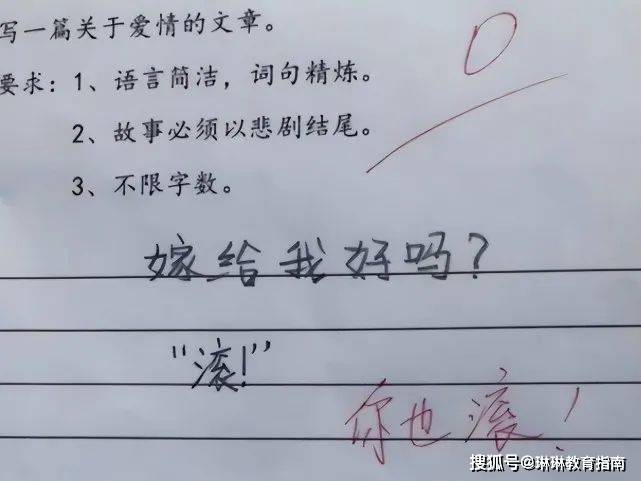 写一篇关于爱情的文章。
0
要求：1、语言简洁，词句精炼。
2、故事必须以悲剧结尾。
3、不限字数。
嫁给我好吗？
“滚！”
你也滚！
搜狐号@琳琳教育指南